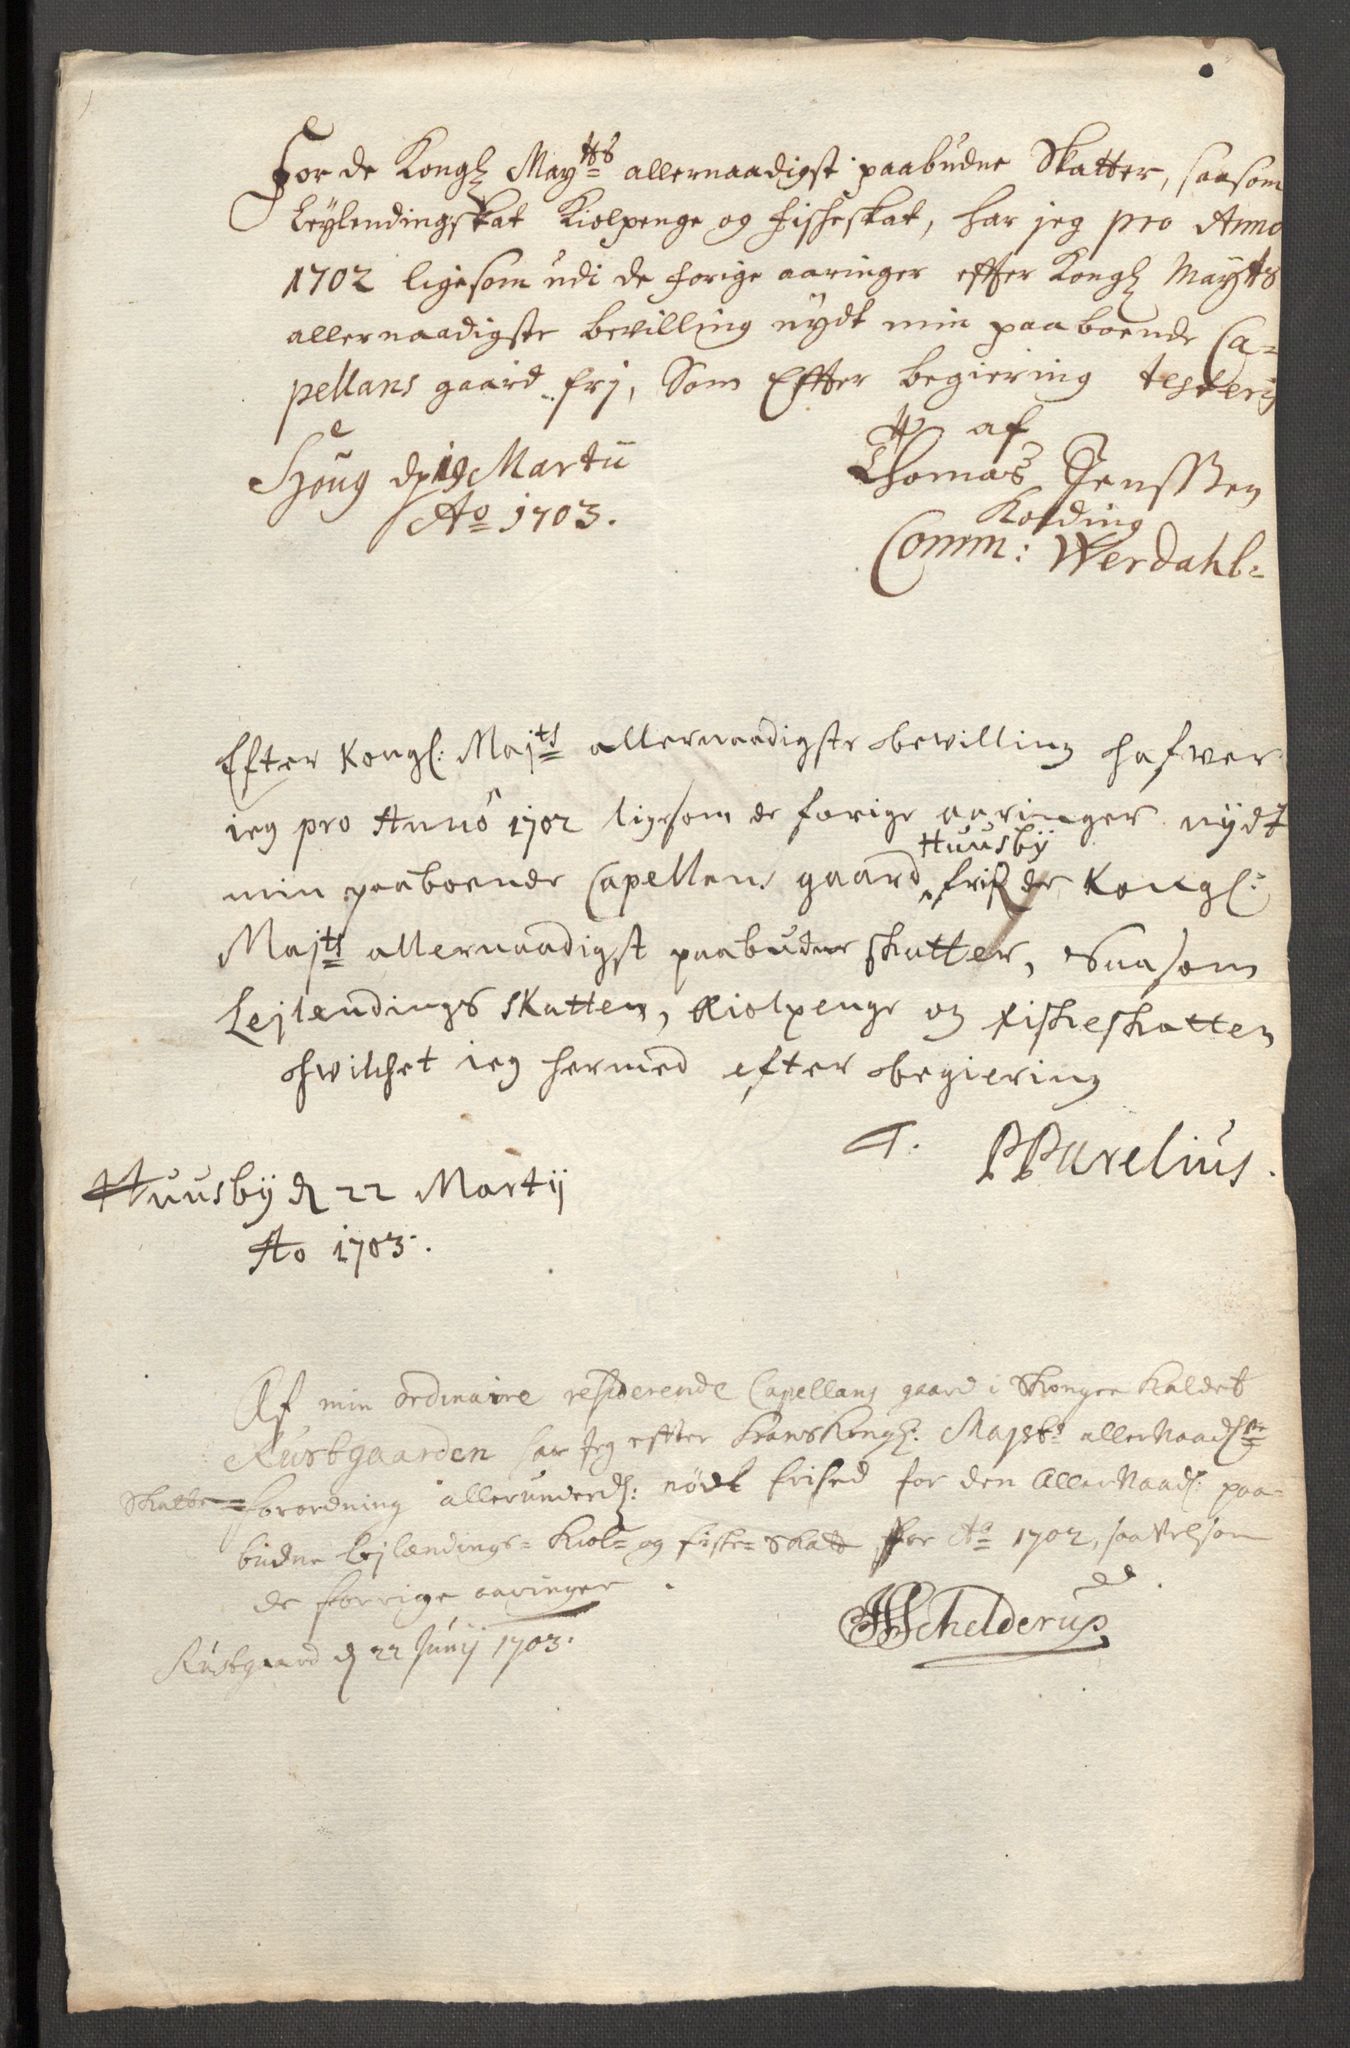 For de Kongl Maytts allernaadigst paabudne Skatter, saasom
Leylendingskat Kiolpenge og fischeskat, har jeg pro Anno
1702 ligesom udi de forige aaringer effter Kongl Mayts
allernaadigste bevilling nydt min paaboende Ca-
pellans gaard frj, Som Effter begiering testeris
af
Houg d 19 Martii
Ao 1703.
Thomas JensSen
Kolding
Comm: Werdahl-
Efter Kongl: Majts allernaadigste bewilling hafver
ieg pro Anno 1702 ligesom de forige aaringer nydt
min paaboende Capellens gaard Huusby fri de Kongl:
Majts allernaadigst paabudne skatter, Saasom
Lejlendings Skatten, Kiolpenge og fiskeskatten
hwilchet ieg hermed efter begiering
T. PPArelius.
Huusby d 22 Martij
Ao 1703.
Af min ordinaire residerende Capellans gaard i Skongen kaldet
Rustgaarden har Jeg effter Hans Kongl: Majsts allerNaadste
Skatte=forordning allerunderd: nødt frihed for den AllerNaad: paa-
budne Lejlændings= Kiol= og fiske= Skatt for Ao 1702, saavelsom
de forrige aaringer.
HSchelderup
Rustgaard d 22 Junij 1703.